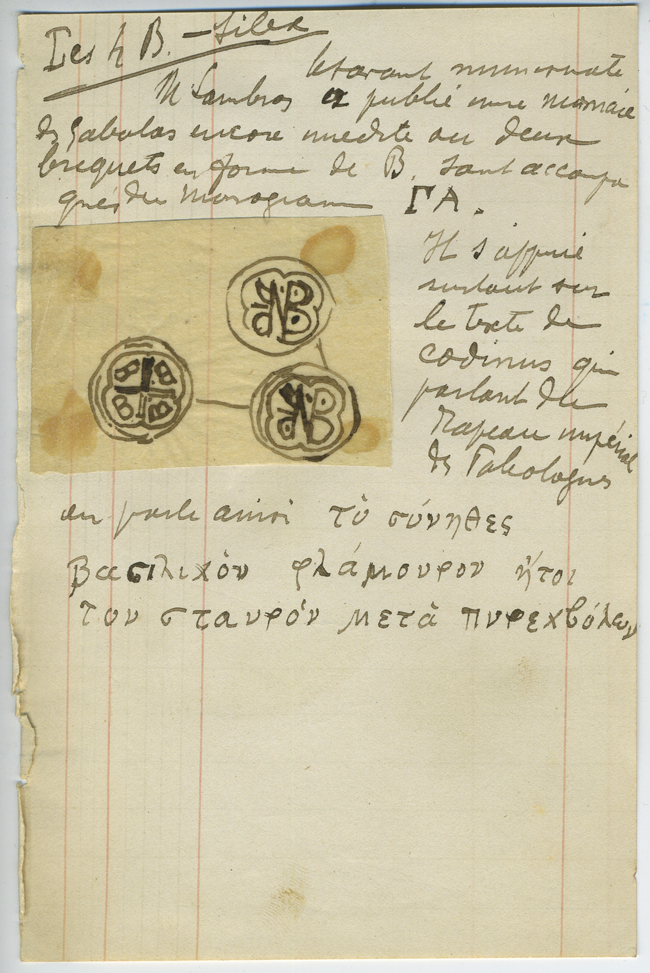 Les 4 B. – Silex
le savant numismate
M Lambros a publié une monnaie
de Gabalas encore inedite ou deux
briquets en forme de B. sont accompa
gnés du monogramme ΓΑ.
Il s'appuie
surtout sur
le texte de
Codinus qui
parlant du
drapeau impérial
des Paleologues
en parle ainsi τὸ σύνηθες
βασιλικὸν φλάμουρον ἤτοι
τον σταυρόν μετὰ πυρεκβόλων